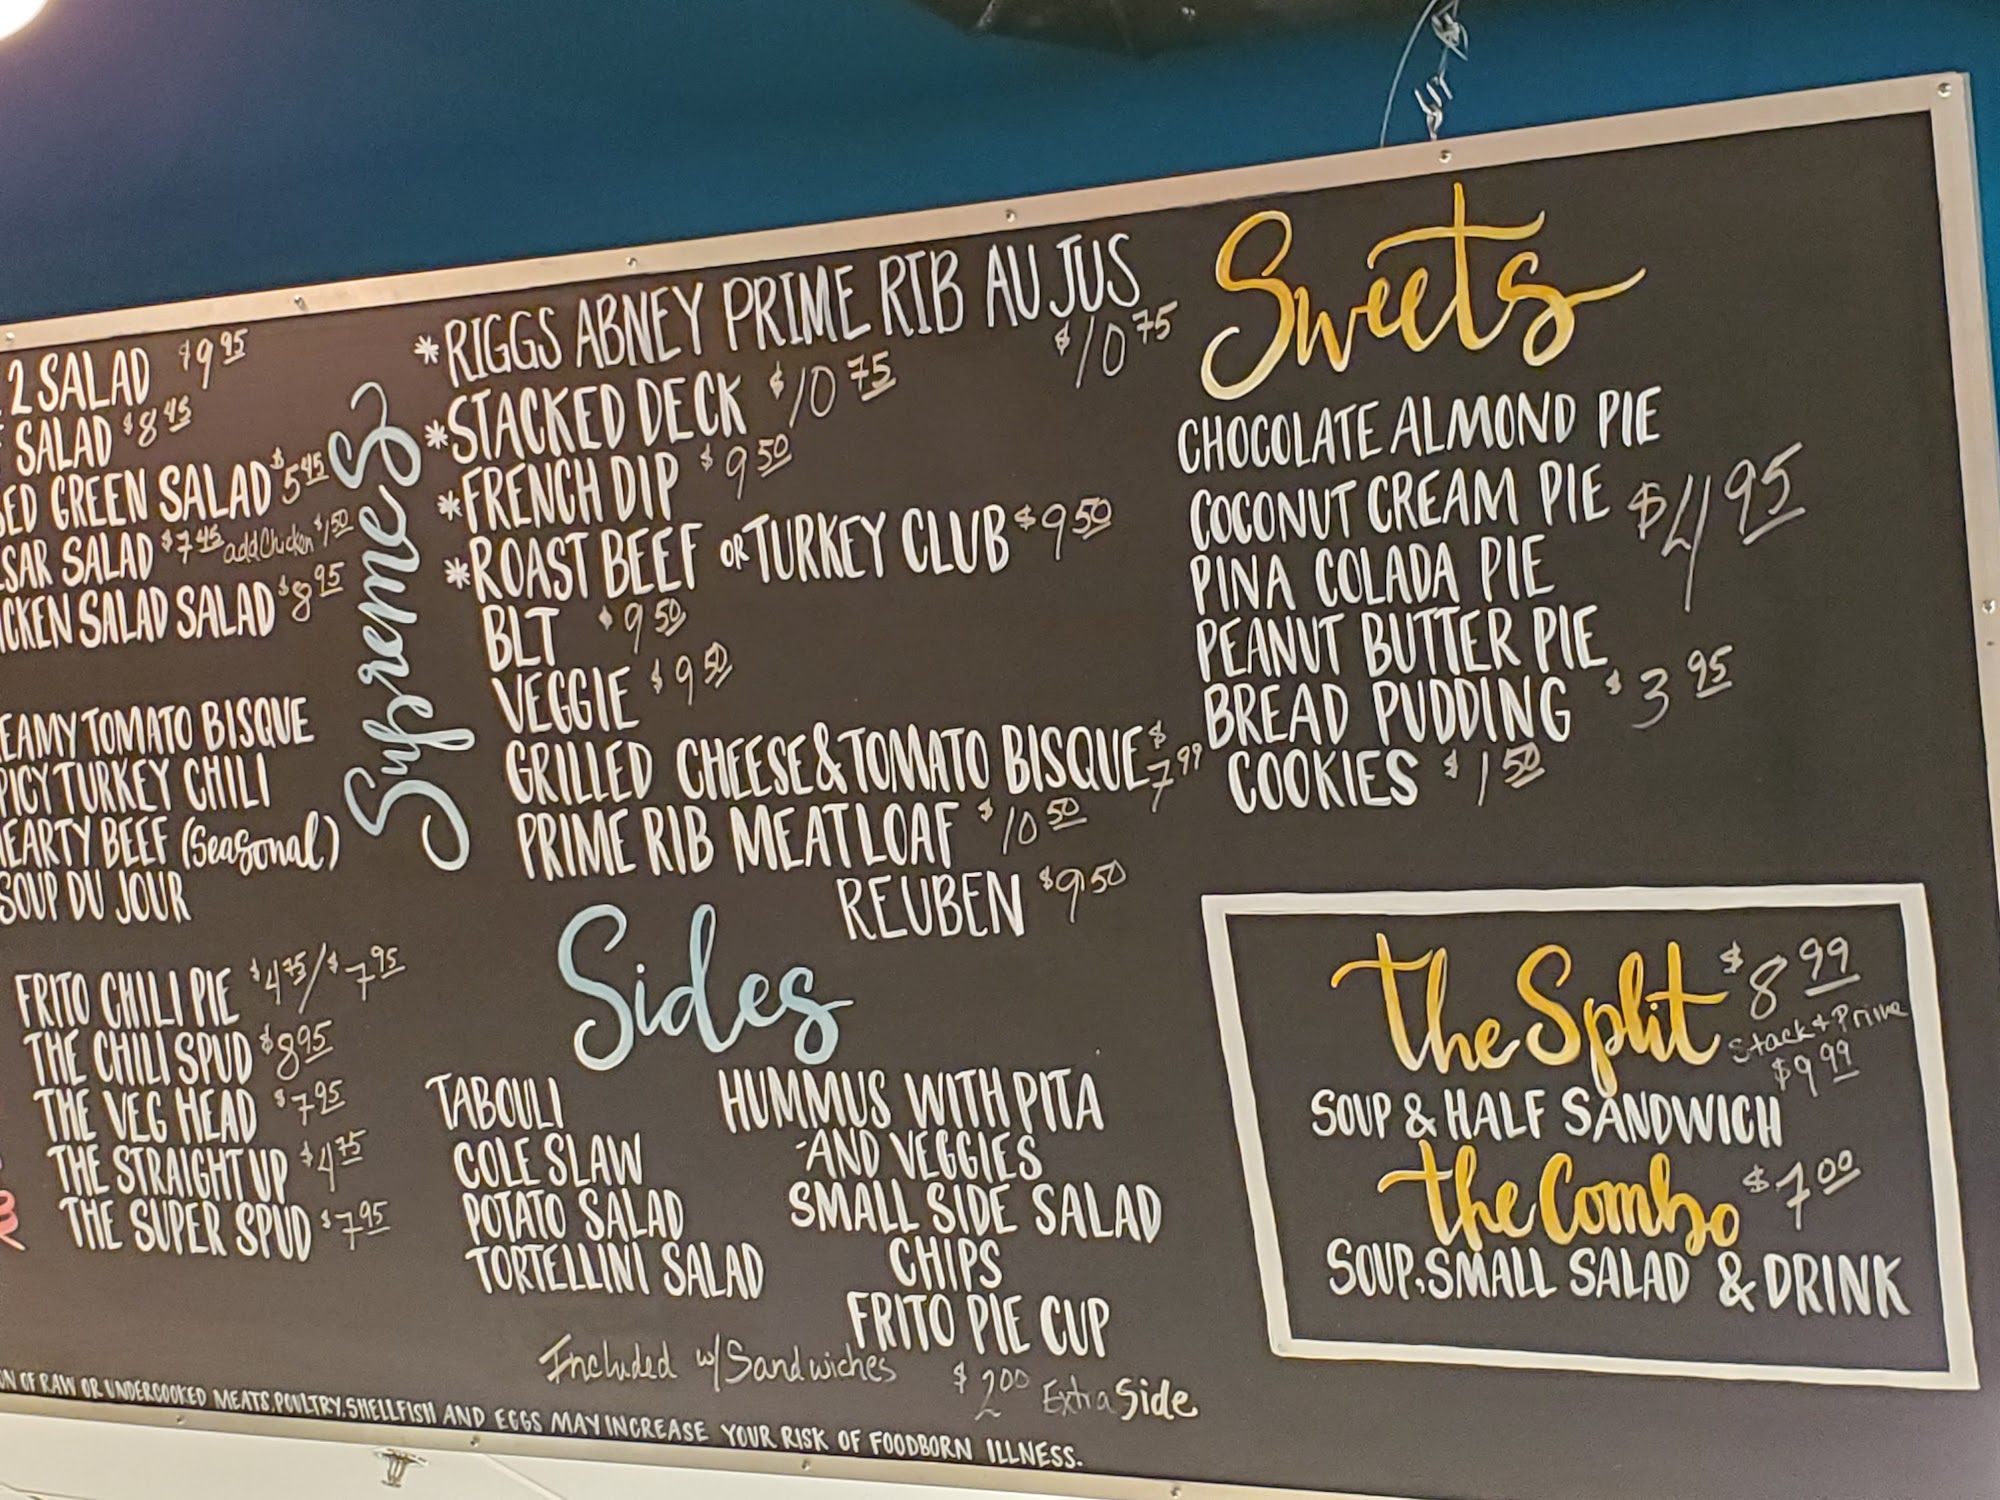 2 SALAD $9.95
SALAD $8.45
GREEN SALAD $5.45
SALAD $7.45 add Chicken $1.50
SALAD SALAD $8.95
TOMATO BISQUE
TURKEY CHILI
BEEF (Seasonal)
SOUP DU JOUR
FRITO CHILI PIE $4.75/$7.95
THE CHILI SPUD $8.95
THE VEG HEAD $7.95
THE STRAIGHT UP $4.75
THE SUPER SPUD $7.95
Supremes
*RIGGS ABNEY PRIME RIB AU JUS
$10.75
*STACKED DECK $10.75
*FRENCH DIP $9.50
*ROAST BEEF OR TURKEY CLUB $9.50
BLT $9.50
VEGGIE $9.50
GRILLED CHEESE & TOMATO BISQUE $7.99
PRIME RIB MEATLOAF $10.50
REUBEN $9.50
Sides
TABOULI
COLE SLAW
POTATO SALAD
TORTELLINI SALAD
HUMMUS WITH PITA
AND VEGGIES
SMALL SIDE SALAD
CHIPS
FRITO PIE CUP
Included w/ Sandwiches
$2.00 Extra Side
Sweets
CHOCOLATE ALMOND PIE
COCONUT CREAM PIE $4.95
PINA COLADA PIE
PEANUT BUTTER PIE
BREAD PUDDING $3.95
COOKIES $1.50
The Split $8.99
Stack & Prime
$9.99
SOUP & HALF SANDWICH
The Combo $7.00
SOUP, SMALL SALAD & DRINK
OF RAW OR UNDERCOOKED MEATS, POULTRY, SHELLFISH AND EGGS MAY INCREASE YOUR RISK OF FOODBORN ILLNESS.